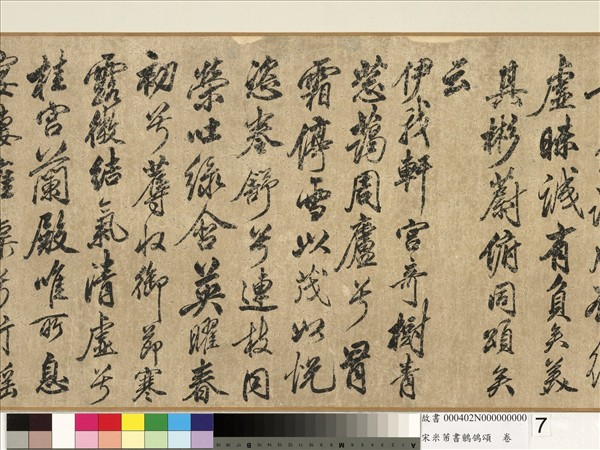 虛昧誠有負矣美
其彬蔚俯同頌矣
云
伊我軒宮奇樹青
葱藹周廬兮冒
霜停雪以茂以悅
恣卷舒兮連枝同
榮吐綠含英曜春
初兮蓐收御節寒
露微結氣清虛兮
桂宮蘭殿唯所息
宴棲雍渠兮行搖
故書 000402N000000000
宋米芾書鶺鴒頌 卷
7